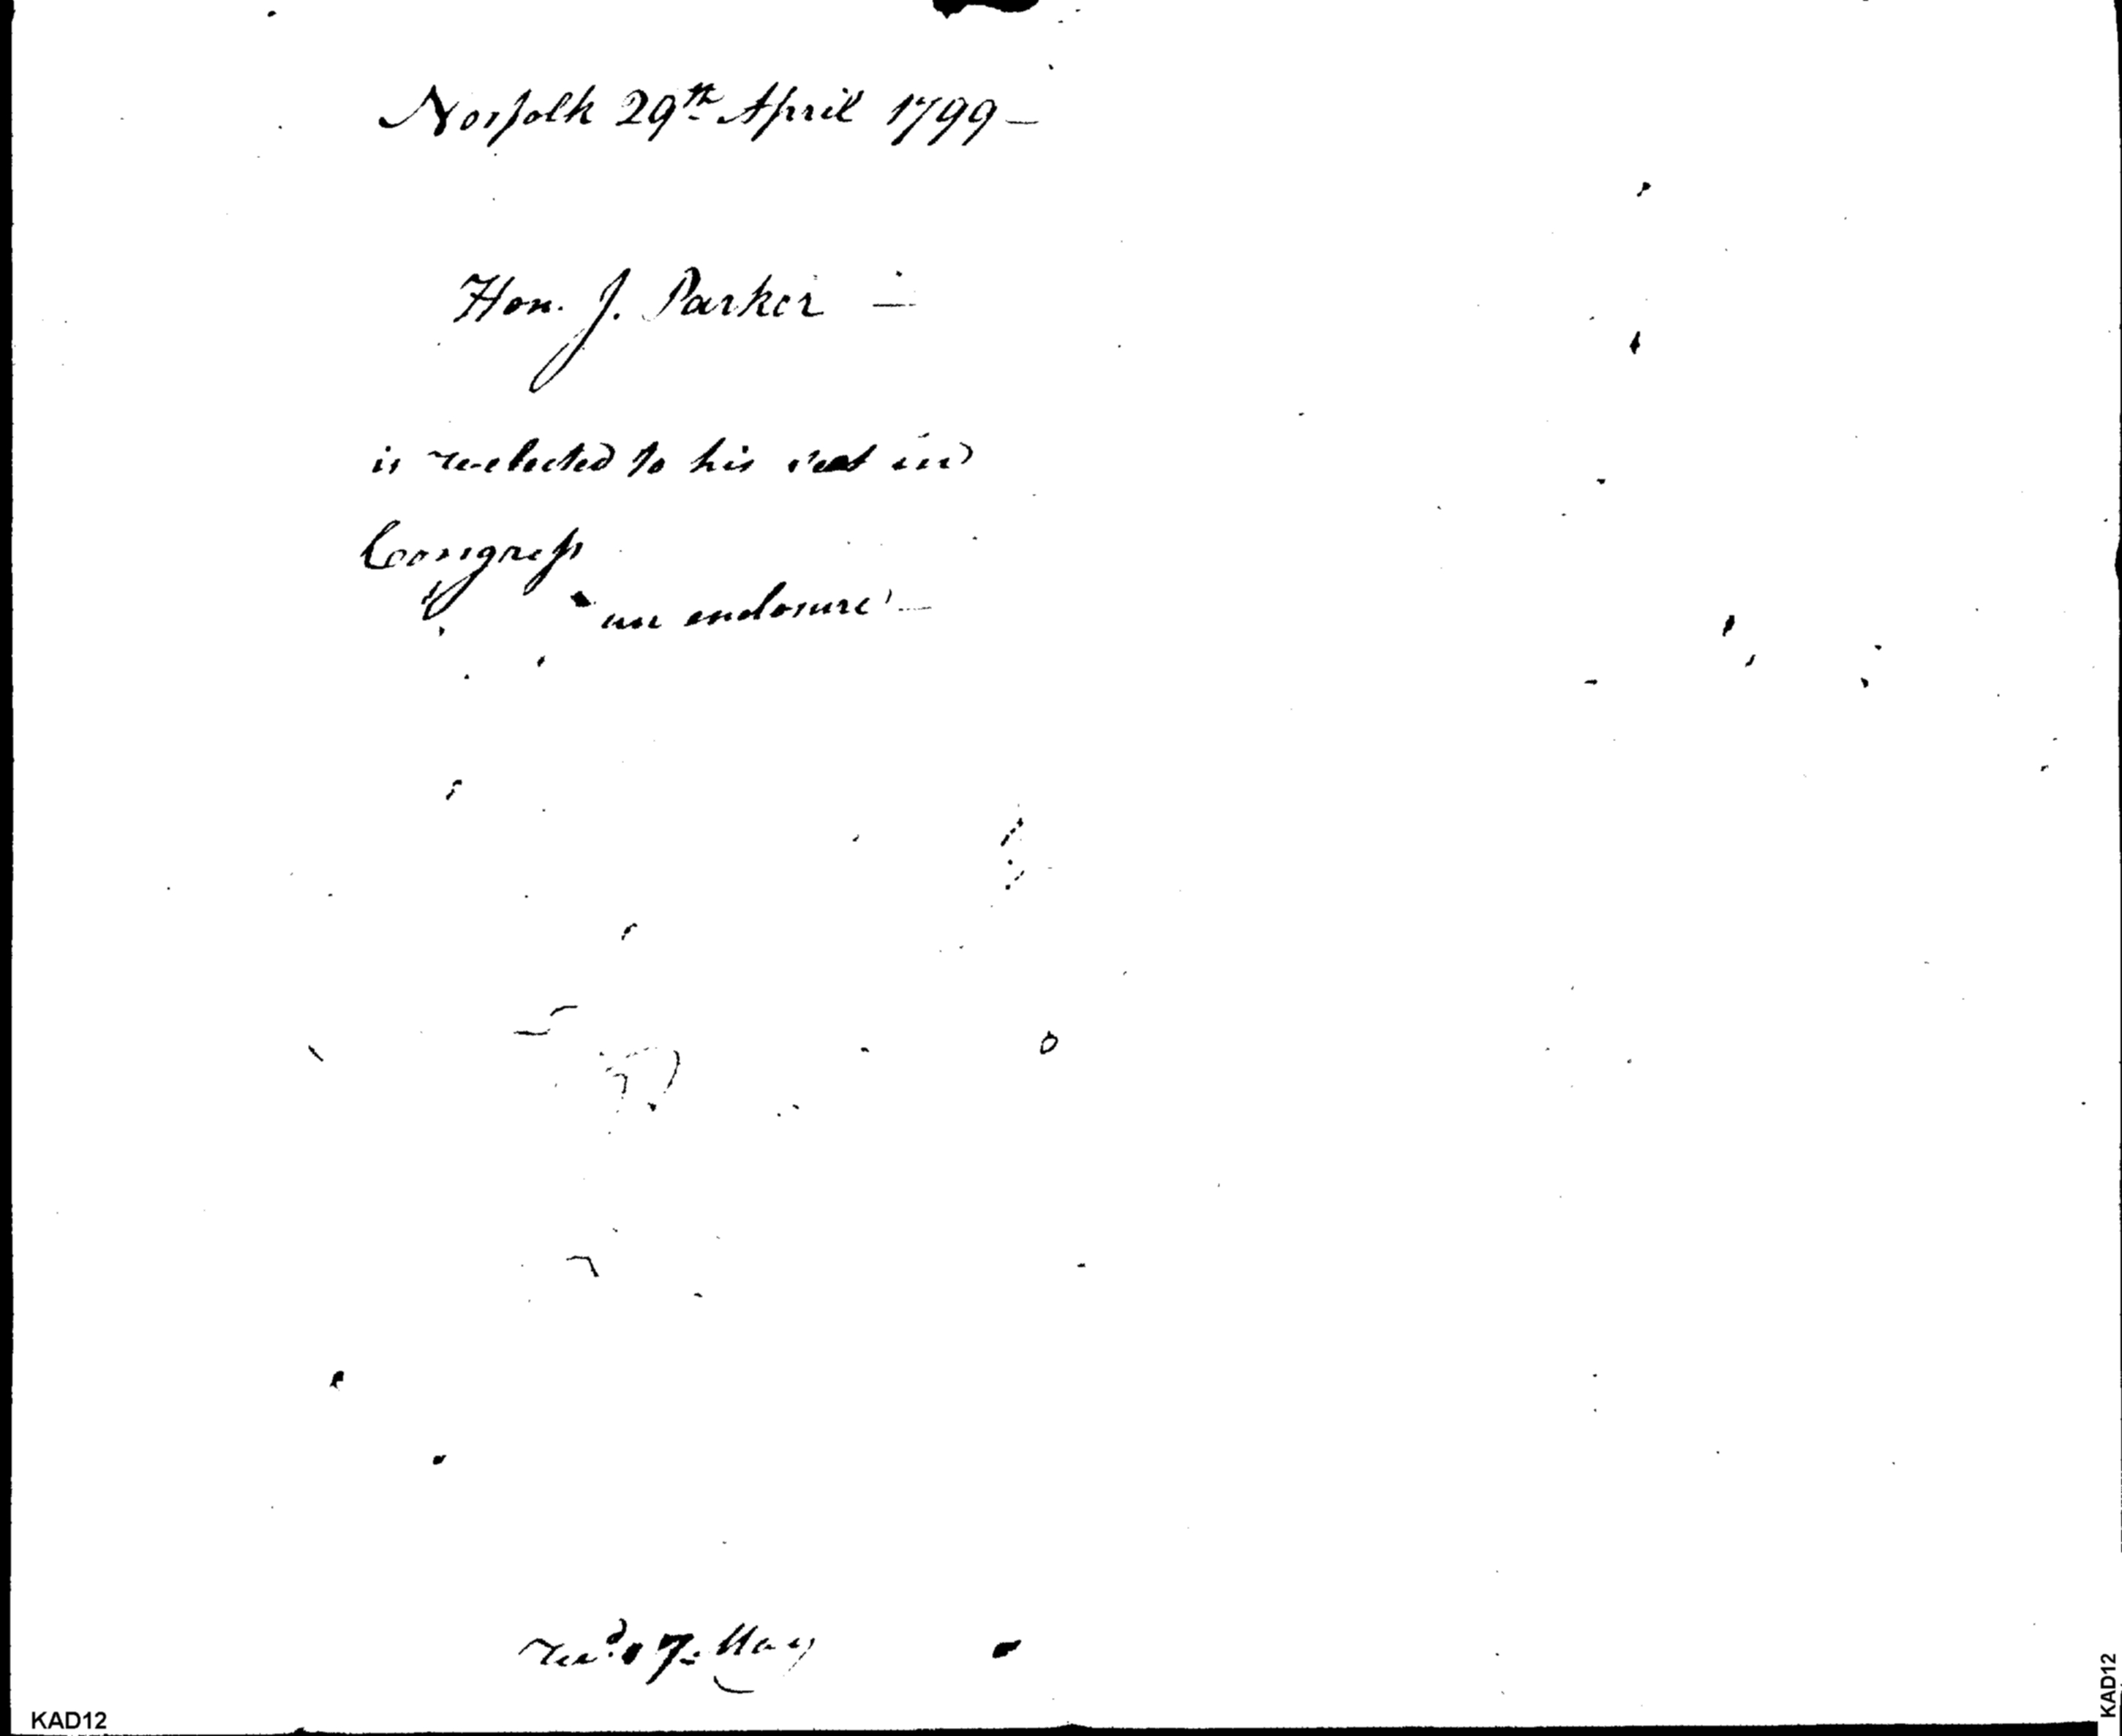 Norfolk 29th April 1799 —
Hon. J. Parker —
is reelected to his seat in
Congress
an enclosure —
recd. 7. May
KAD12
KAD12